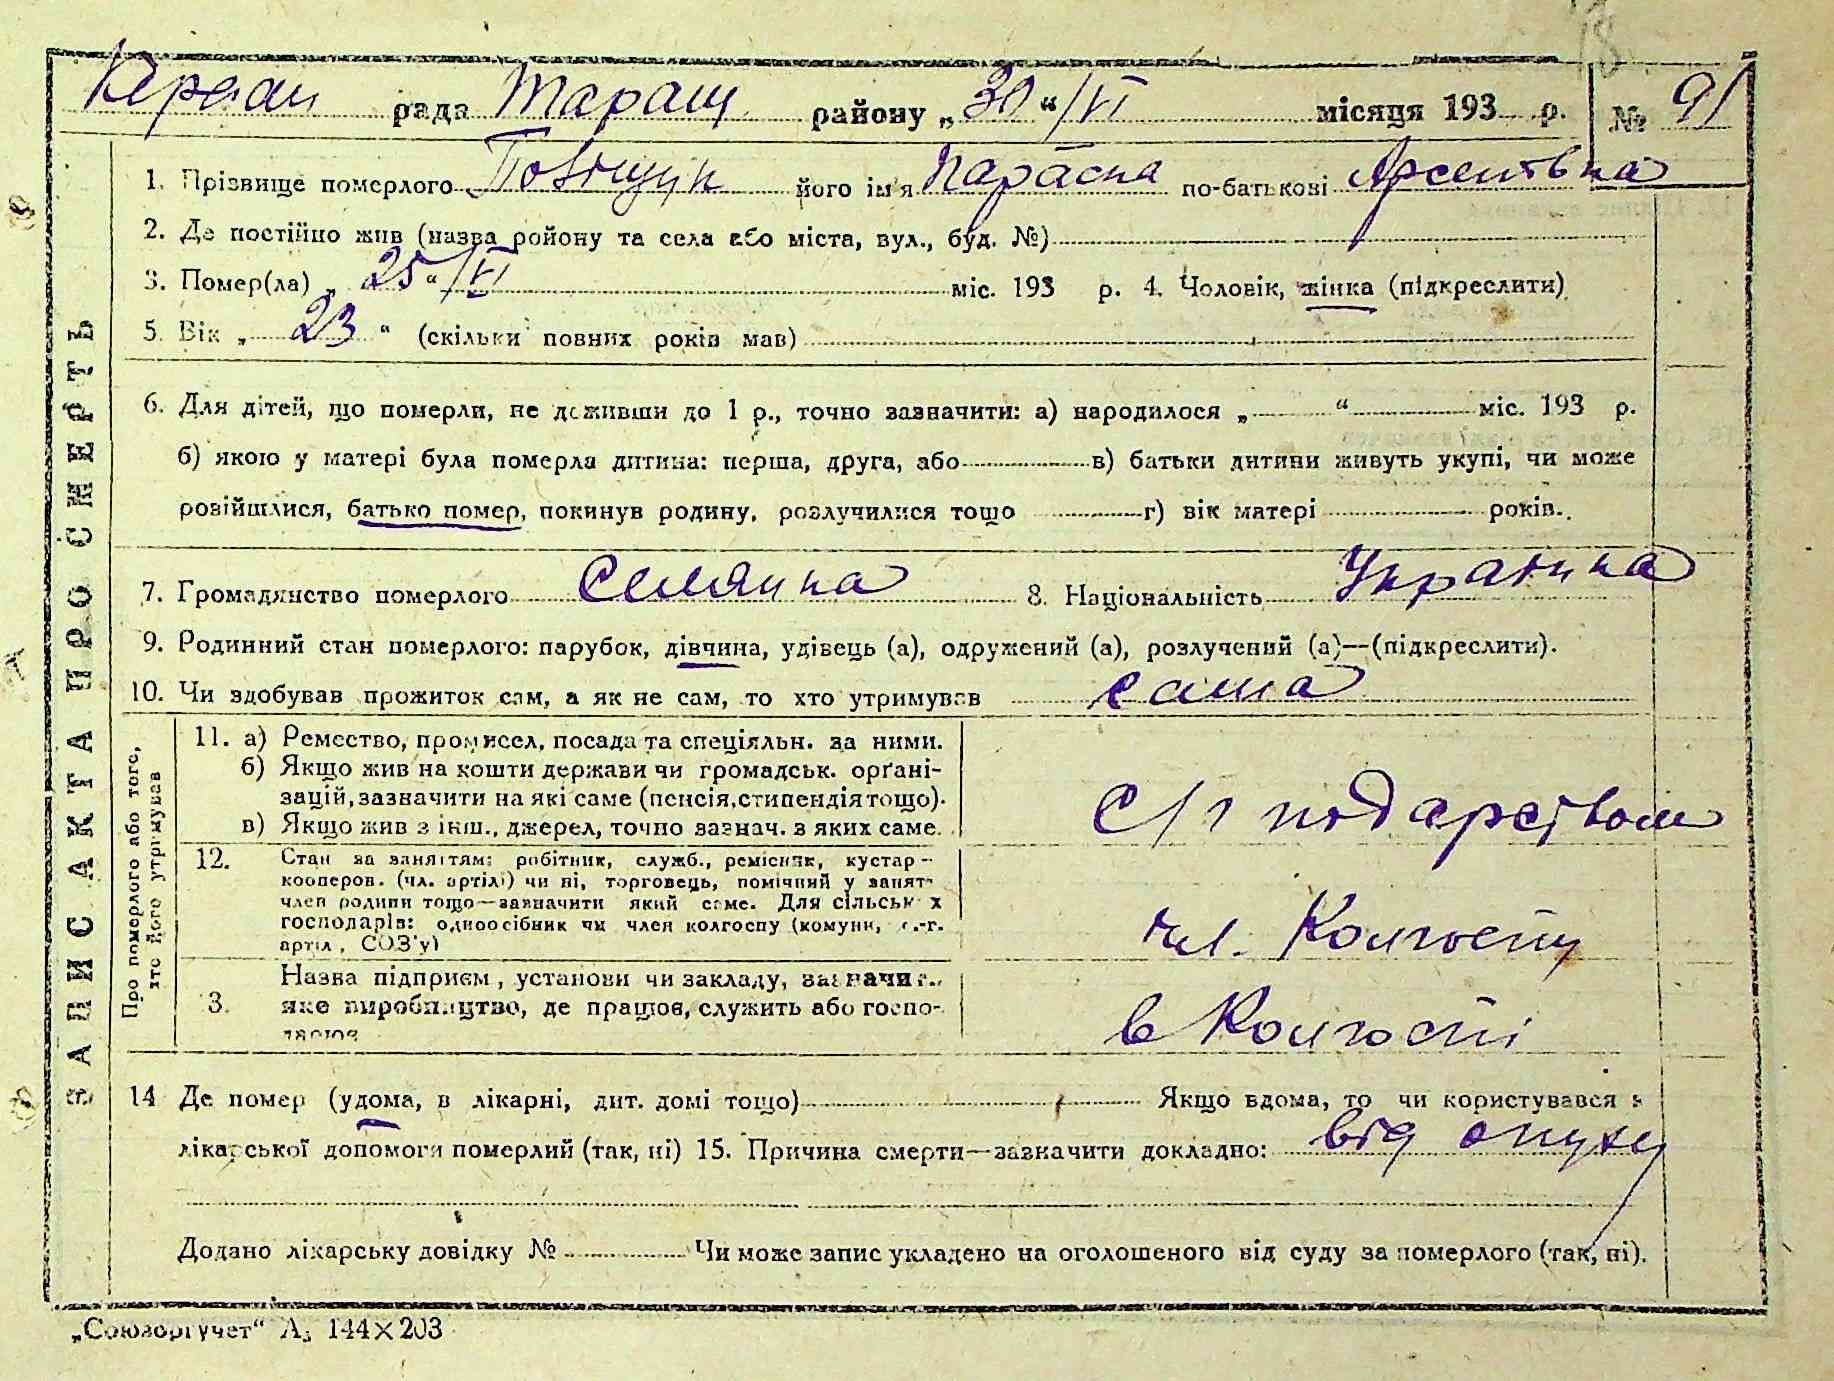 рада Таращ району „30“/VI місяця 193 р. № 91
1. Прізвище померлого його ім'я Параска по-батькові
2. Де постійно жив (назва ройону та села або міста, вул., буд. №)
3. Помер(ла) „25“/VI міс. 193 р. 4. Чоловік, жінка (підкреслити)
5. Вік „23“ (скільки повних років мав)
6. Для дітей, що померли, не доживши до 1 р., точно зазначити: а) народилося „ “ міс. 193 р.
б) якою у матері була померла дитина: перша, друга, або в) батьки дитини живуть укупі, чи може
розійшлися, батько помер, покинув родину, розлучилися тощо г) вік матері років.
7. Громадянство померлого Селянка 8. Національність Українка
9. Родинний стан померлого: парубок, дівчина, удівець (а), одружений (а), розлучений (а)—(підкреслити).
10. Чи здобував прожиток сам, а як не сам, то хто утримував сама
ЗАПИС АКТА ПРО СМЕРТЬ
Про померлого або того,
хто його утримував
11. а) Ремество, промисел, посада та спеціяльн. за ними.
б) Якщо жив на кошти держави чи громадськ. орґані-
зацій, зазначити на які саме (пенсія, стипендія тощо).
в) Якщо жив з інш., джерел, точно зазнач. з яких саме.
С/г подарством
12. Стан за заняттям: робітник, служб., ремісник, кустар-
кооперов. (чл. артілі) чи ні, торговець, помічний у занят-
член родини тощо—зазначити який саме. Для сільськ х
господарів: одноосібник чи член колгоспу (комуни, с.-г.
артіл, СОЗ'у)
чл. Колгоспу
Назва підприєм, установи чи закладу, зазначит.,
3. яке виробництво, де працює, служить або госпо-
в Колгоспі
14 Де помер (удома, в лікарні, дит. домі тощо) Якщо вдома, то чи користувався з
лікарської допомоги померлий (так, ні) 15. Причина смерти—зазначити докладно: від опуху
Додано лікарську довідку № Чи може запис укладено на оголошеного від суду за померлого (так, ні).
„Союзоргучет“ А₅ 144×203